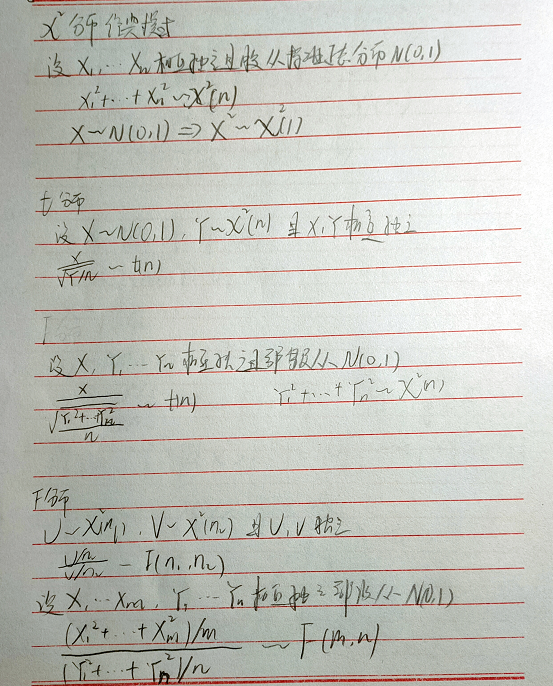 χ²分布
设 X₁…Xn相互独立且服从标准正态分布N(0,1)
X₁²+…+Xn²~χ²(n)
X~N(0,1) ⇒ X²~χ²(1)
t分布
设 X~N(0,1), Y~χ²(n) 且X,Y相互独立
X/√(Y/n) ~ t(n)
设 X, Y₁…Yn相互独立且都服从N(0,1)
X/√((Y₁²+…+Yn²)/n) ~ t(n) Y₁²+…+Yn²~χ²(n)
F分布
U~χ²(n₁), V~χ²(n₂) 且U,V独立
(U/n₁)/(V/n₂) ~ F(n₁,n₂)
设 X₁…Xm, Y₁…Yn相互独立都服从N(0,1)
((X₁²+…+Xm²)/m)/((Y₁²+…+Yn²)/n) ~ F(m,n)